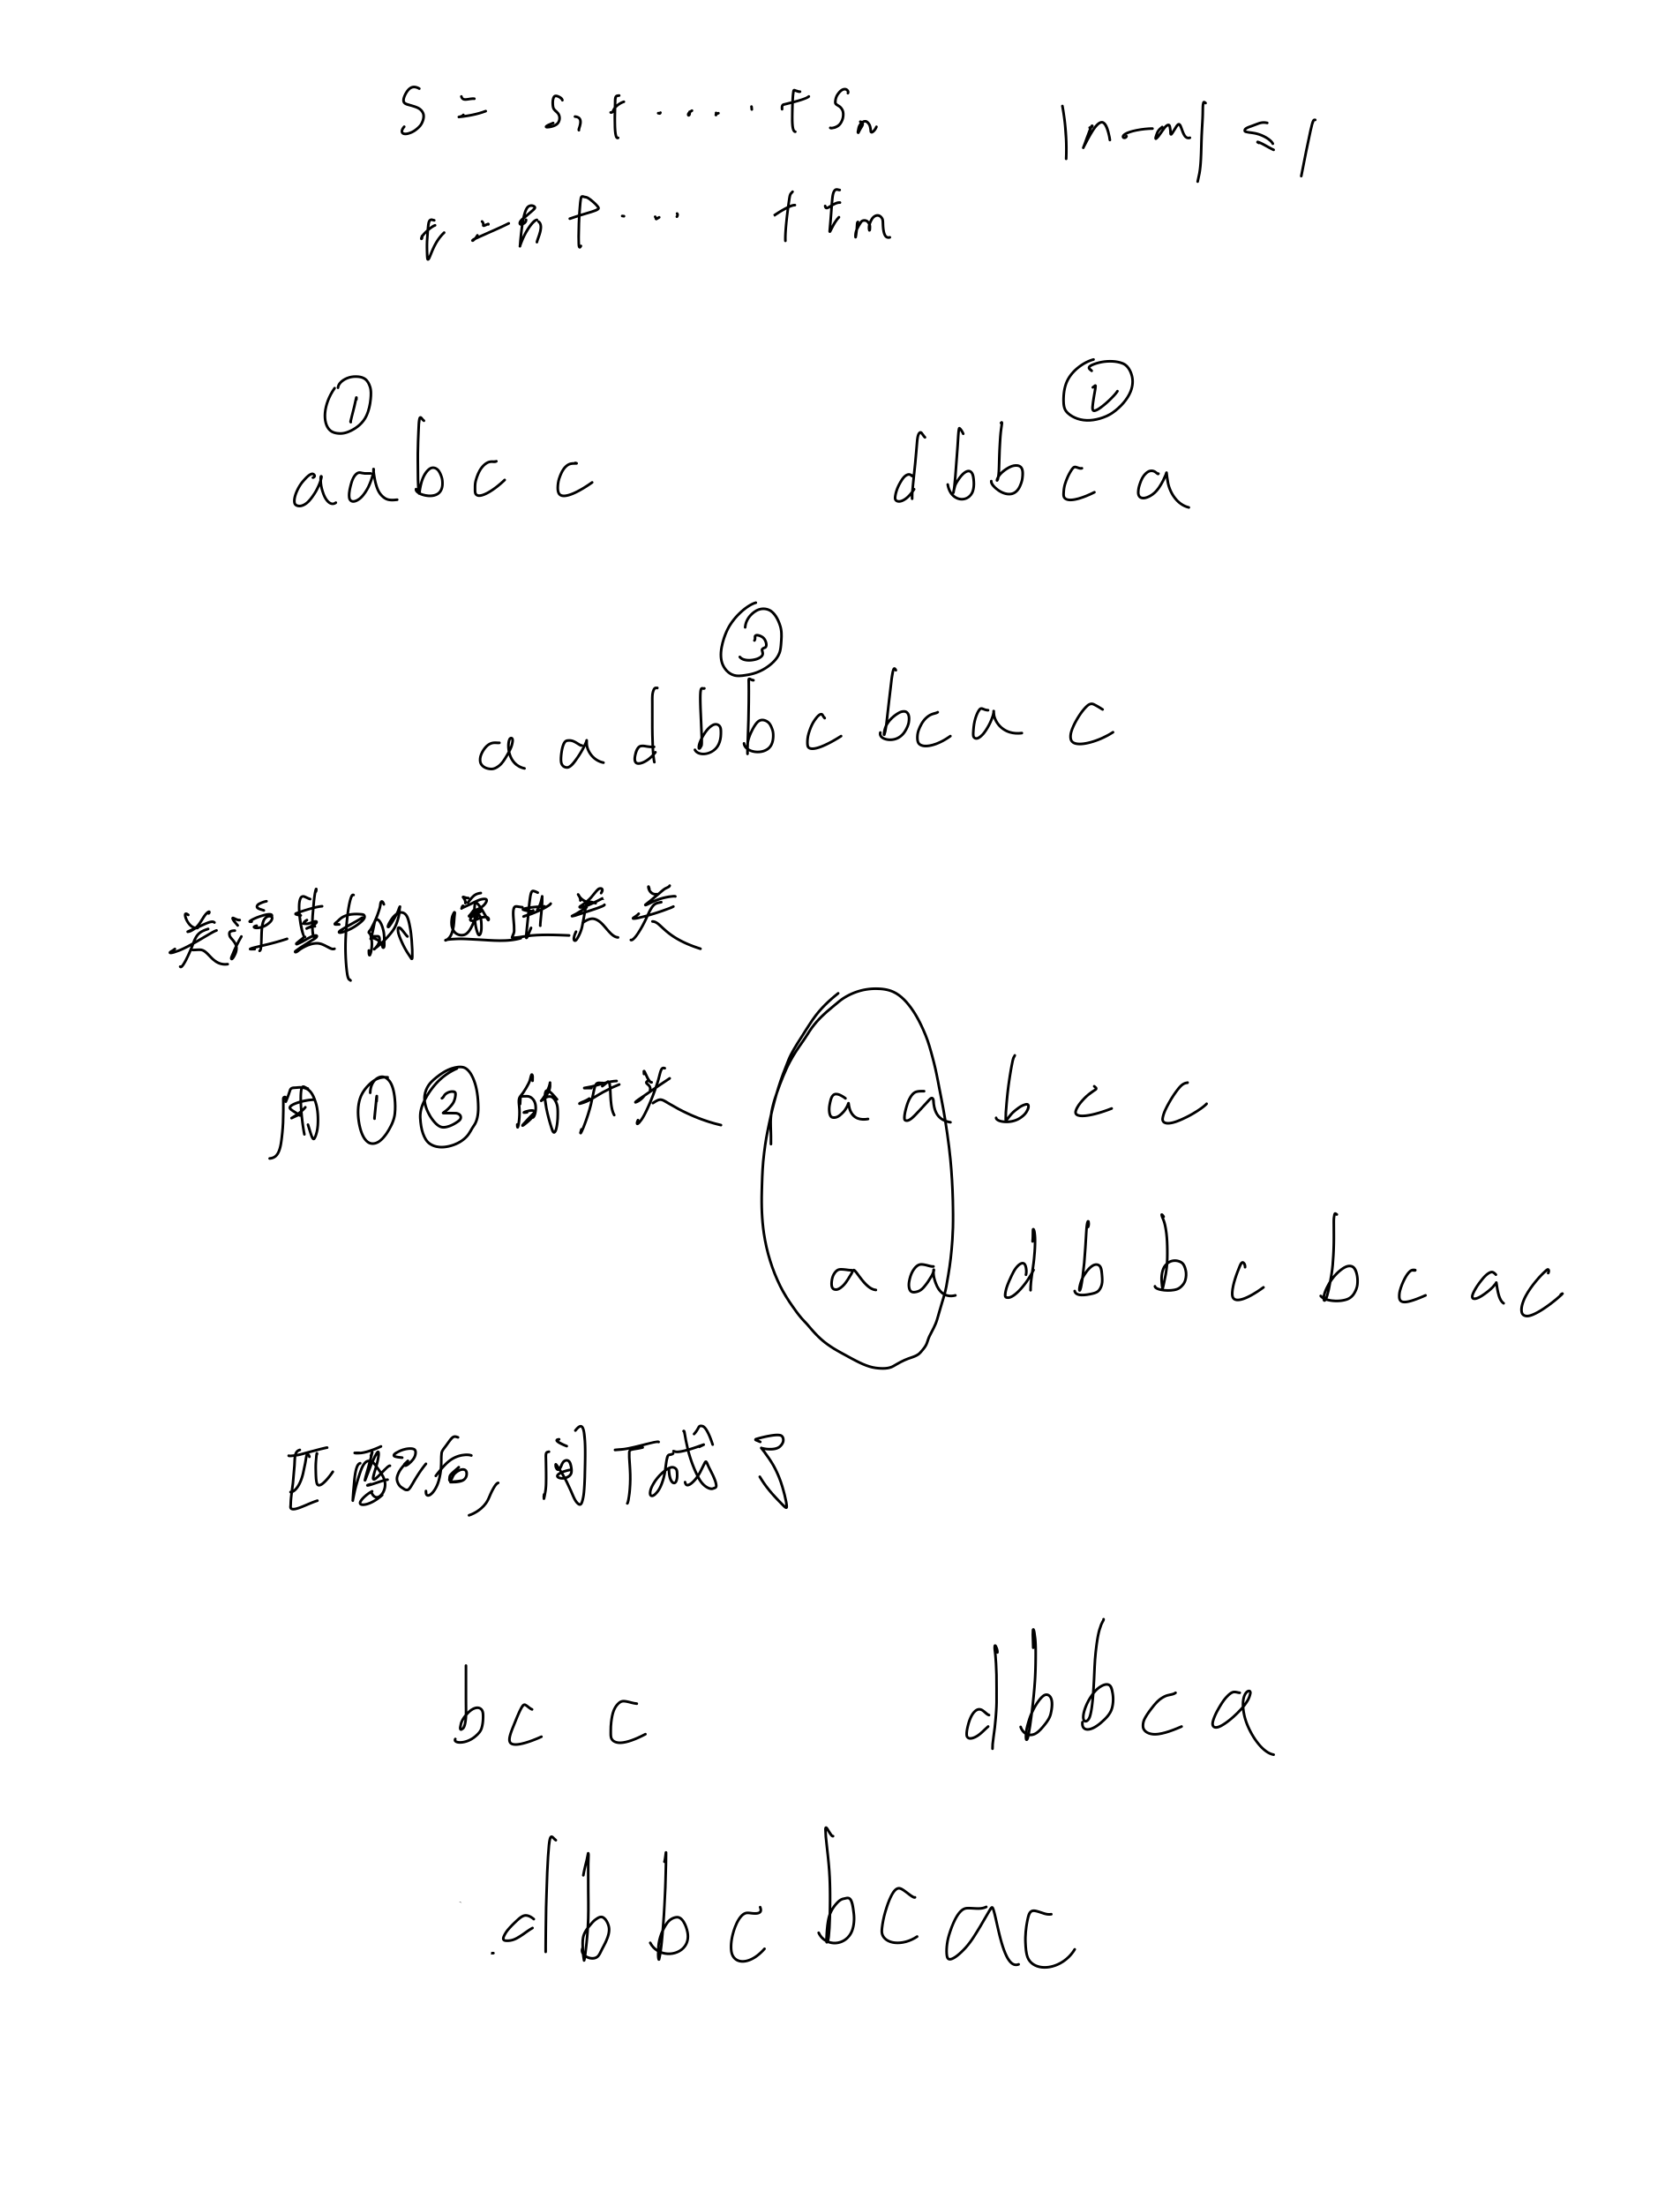 S = s₁ + ... + sₙ |n-m| ≤ 1
t = t₁ + ... + tₘ
① ②
aabcc dbbca
③
aadbbcbcac
关注其中的 关
用 ① ③ 的开头 aabcc
aadbbcbcac
匹配后, 问 成了
bcc dbbca
dbbcbcac